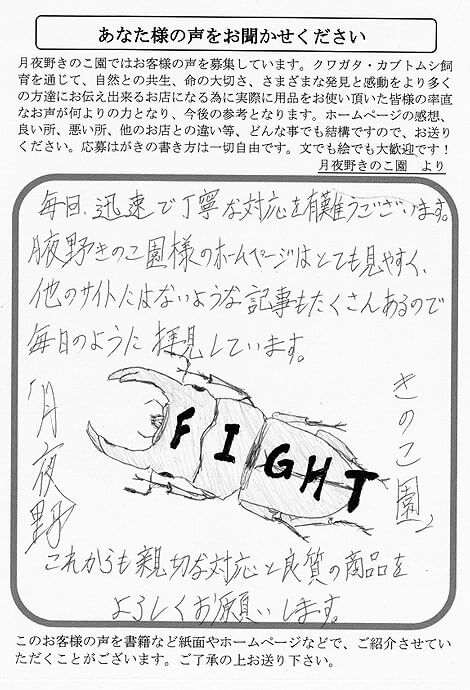 あなた様の声をお聞かせください
月夜野きのこ園ではお客様の声を募集しています。クワガタ・カブトムシ飼
育を通じて、自然との共生、命の大切さ、さまざまな発見と感動をより多く
の方達にお伝え出来るお店になる為に実際に用品をお使い頂いた皆様の率直
なお声が何よりの力となり、今後の参考となります。ホームページの感想、
良い所、悪い所、他のお店との違い等、どんな事でも結構ですので、お送り
ください。応募はがきの書き方は一切自由です。文でも絵でも大歓迎です！
月夜野きのこ園 より
毎日、迅速で丁寧な対応を有難うございます。
月夜野きのこ園様のホームページはとても見やすく、
他のサイトにはないような記事もたくさんあるので
毎日のように拝見しています。
「月夜野
FIGHT
きのこ園」
これからも親切な対応と良質の商品を
よろしくお願いします。
このお客様の声を書籍など紙面やホームページなどで、ご紹介させてい
ただくことがございます。ご了承の上お送り下さい。